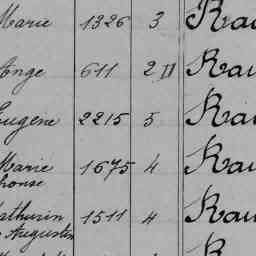 Marie 1326 3 Rau
Ange 611 2 II Rau
Eugène 2215 5 Rau
Marie 1675 4 Rau
phonse
Mathurin 1511 4 Rau
Augustin